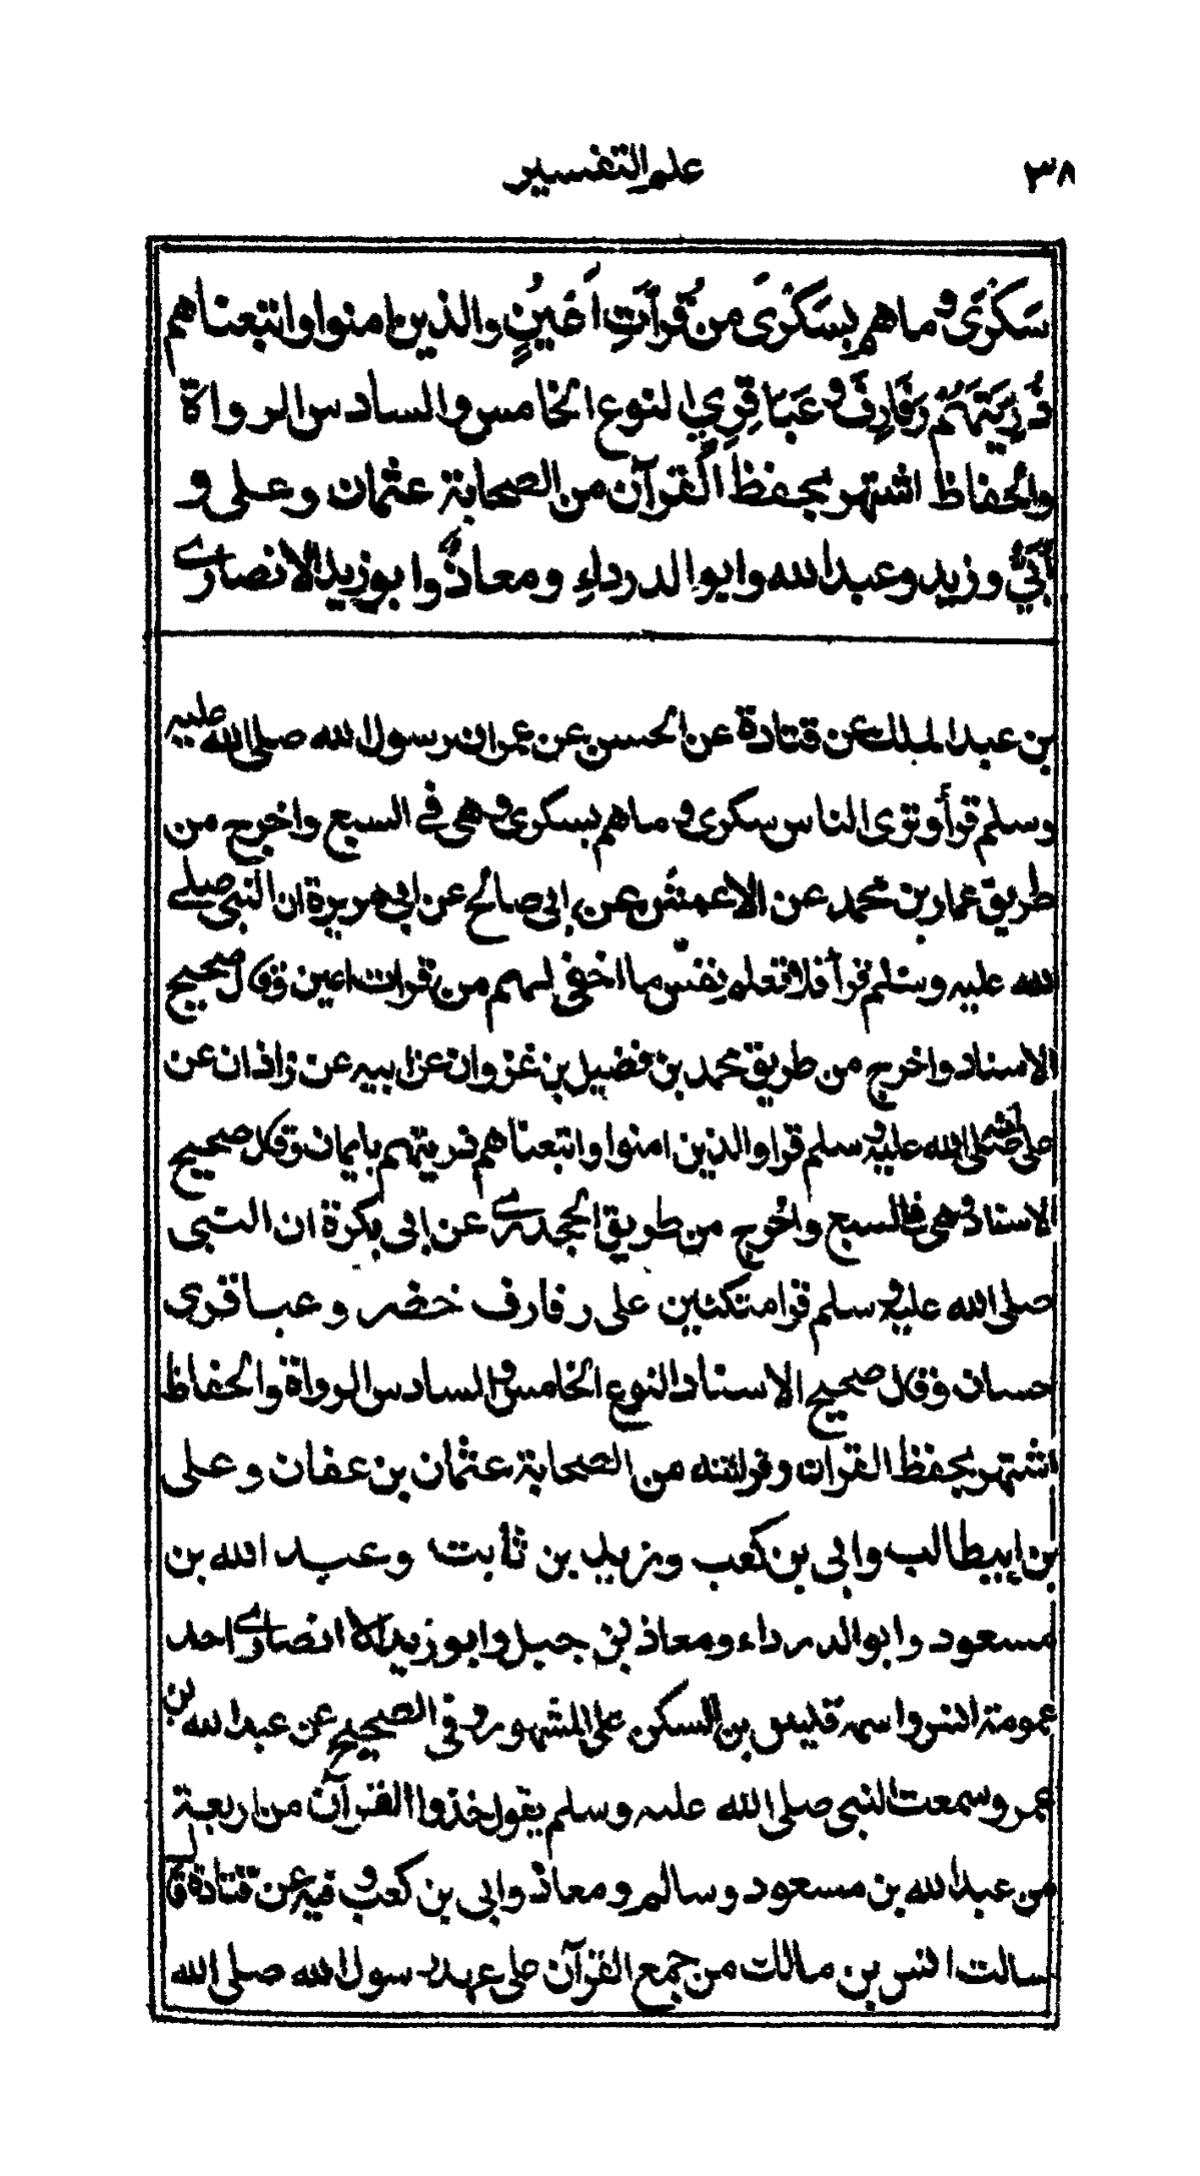 ٣٨
علم التفسير
سَكْرَى وما هم بِسَكْرَى من قُرآتِ اَعْيُنٍ والذين امنوا واتبعناهم
ذُرِيَتَهُم رَفَارِفَ وعَبَاقِرِي النوع الخامس والسادس الرواة
والحُفاظ اشتهر بحفظ القرآن من الصحابة عثمان وعلى و
أُبَيٌّ وزيد وعبد الله وابو الدرداءِ ومعاذٌ وابو زيد الانصارى
بن عبد الملك عن قتادة عن الحسن عن عمران رسول الله صلى الله عليه
وسلم قرأ وترى الناس سكرى وما هم بسكرى وهى فى السبع واخرج من
طريق عمار بن محمد عن الاعمش عن ابى صالح عن ابى هريرة ان النبى صلے
لله عليه وسلم قرأ فلا تعلم نفس ما اخفى لهم من قرات اعين وقال صحيح
الاسناد واخرج من طريق محمد بن فضيل بن غزوان عن ابيه عن زاذان عن
على صلى الله عليه وسلم قرا والذين امنوا واتبعناهم ذريتهم بايمان وقال صحيح
الاسناد وهى فى السبع واخرج من طريق الجحدرى عن ابى بكرة ان النبى
صلى الله عليه وسلم قرا متكئين على رفارف خضر وعباقرى
حسان وقال صحيح الاسناد النوع الخامس والسادس الرواة والحفاظ
اشتهر بحفظ القران وقرائته من الصحابة عثمان بن عفان وعلى
بن ابيطالب وابى بن كعب وزيد بن ثابت وعبد الله بن
مسعود وابو الدرداء ومعاذ بن جبل وابو زيد الانصارى احد
عمومة انس واسمه قيس بن السكن على المشهور وفى الصحيح عن عبد الله بن
عمر وسمعت النبى صلى الله عليه وسلم يقول خذوا القرآن من اربعة
من عبد الله بن مسعود وسالم ومعاذ وابى بن كعب وفيه عن قتادة قال
سالت انس بن مالك من جمع القرآن على عهد رسول الله صلى الله